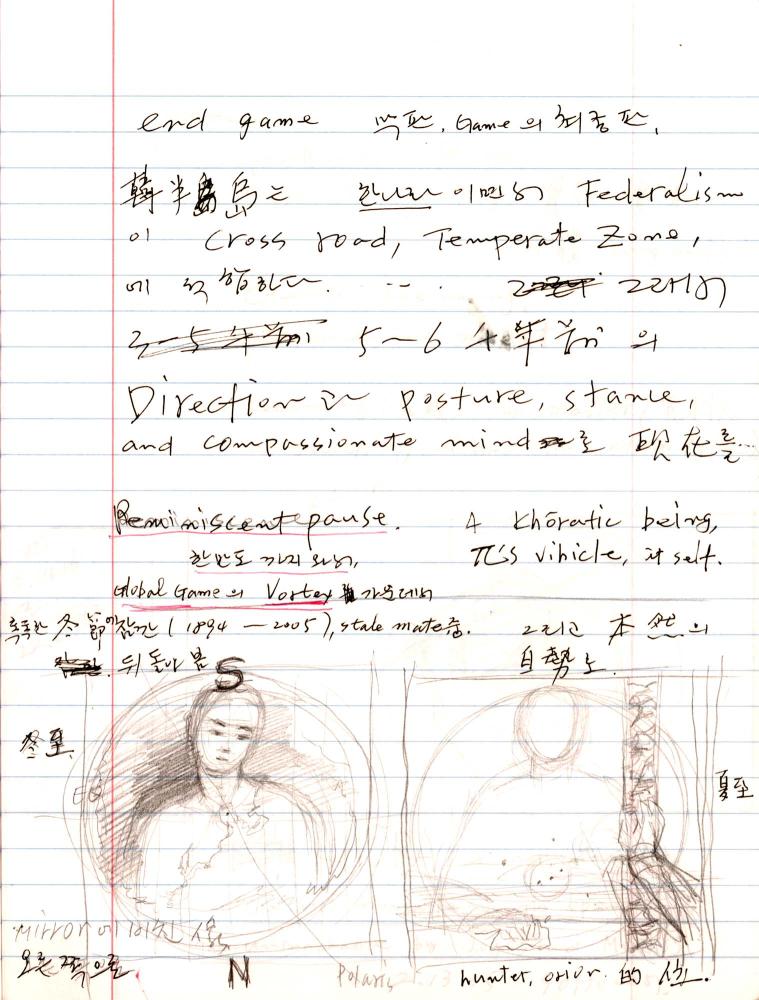 end game 막판, Game의 최종판,
韓半島는 한나라이면서 Federalism
이 Cross road, Temperate Zone,
에 한다. ... 그래서
5~6 의
Direction과 posture, stance,
and compassionate mind로 現在를...
Reminiscent pause.
한반도까지 와서,
Global Game의 Vortex 가운데서
혹독한 冬節에 잠깐 (1894 — 2005), stale mate중.
뒤돌아 봄
A khōratic being,
π'S vihicle, it self.
그리고 本然의
自勢로.
S
冬至
EQ
夏至
Mirror에 비친
오른쪽으로
N
Polaris
hunter, orior. 的 位.